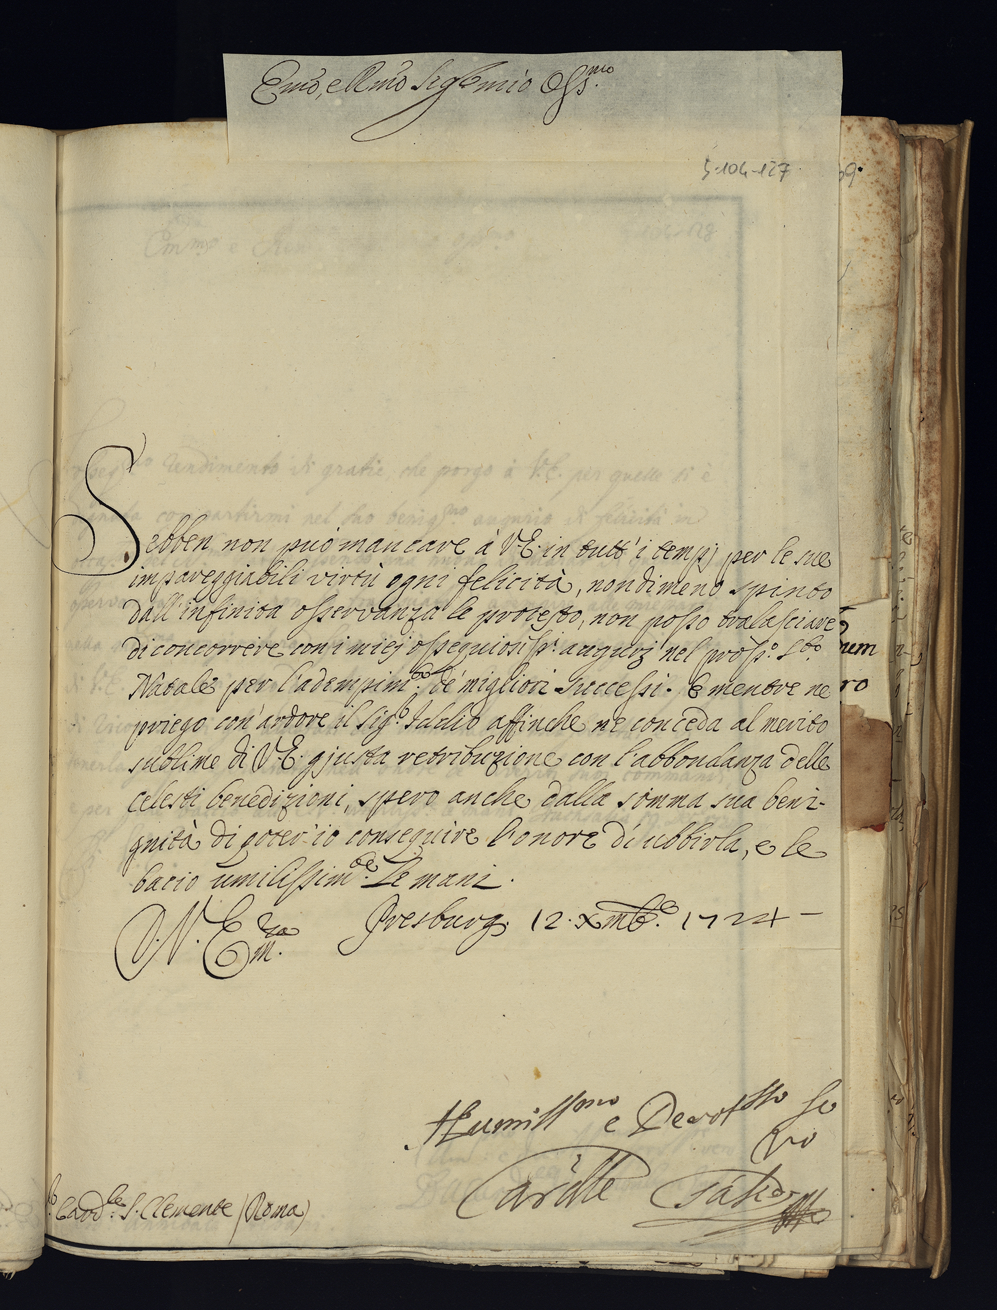 Em̃o, e Rm̃o Sig.r mio Oss.mo
5-104-127
Sebben non può mancare à V.E. in tutt' i tempj per le sue
impareggiabili virtù ogni felicità, nondimeno spinto
dall'infinita osservanza le protesto, non posso tralasciare
di concorrere con i miej ossequiosiss.i augurj nel pross.o S.to
Natale per l'adempim.to de' migliori successi. E mentre ne
priego con'ardore il Sig.r Iddio affinche ne conceda al merito
sublime di V.E. gjusta retribuzione con l'abbondanza delle
celesti benedizioni, spero anche dalla somma sua beni-
gnità di poter'io conseguire l'onore d'ubbirla, e le
bacio umilissim.te le mani.
D. V. Em.za Presburg. 12. Xmb.e 1724 -
Humill.mo e Devot.mo Se
rvo
S.r Card.le S. Clemente (Roma)